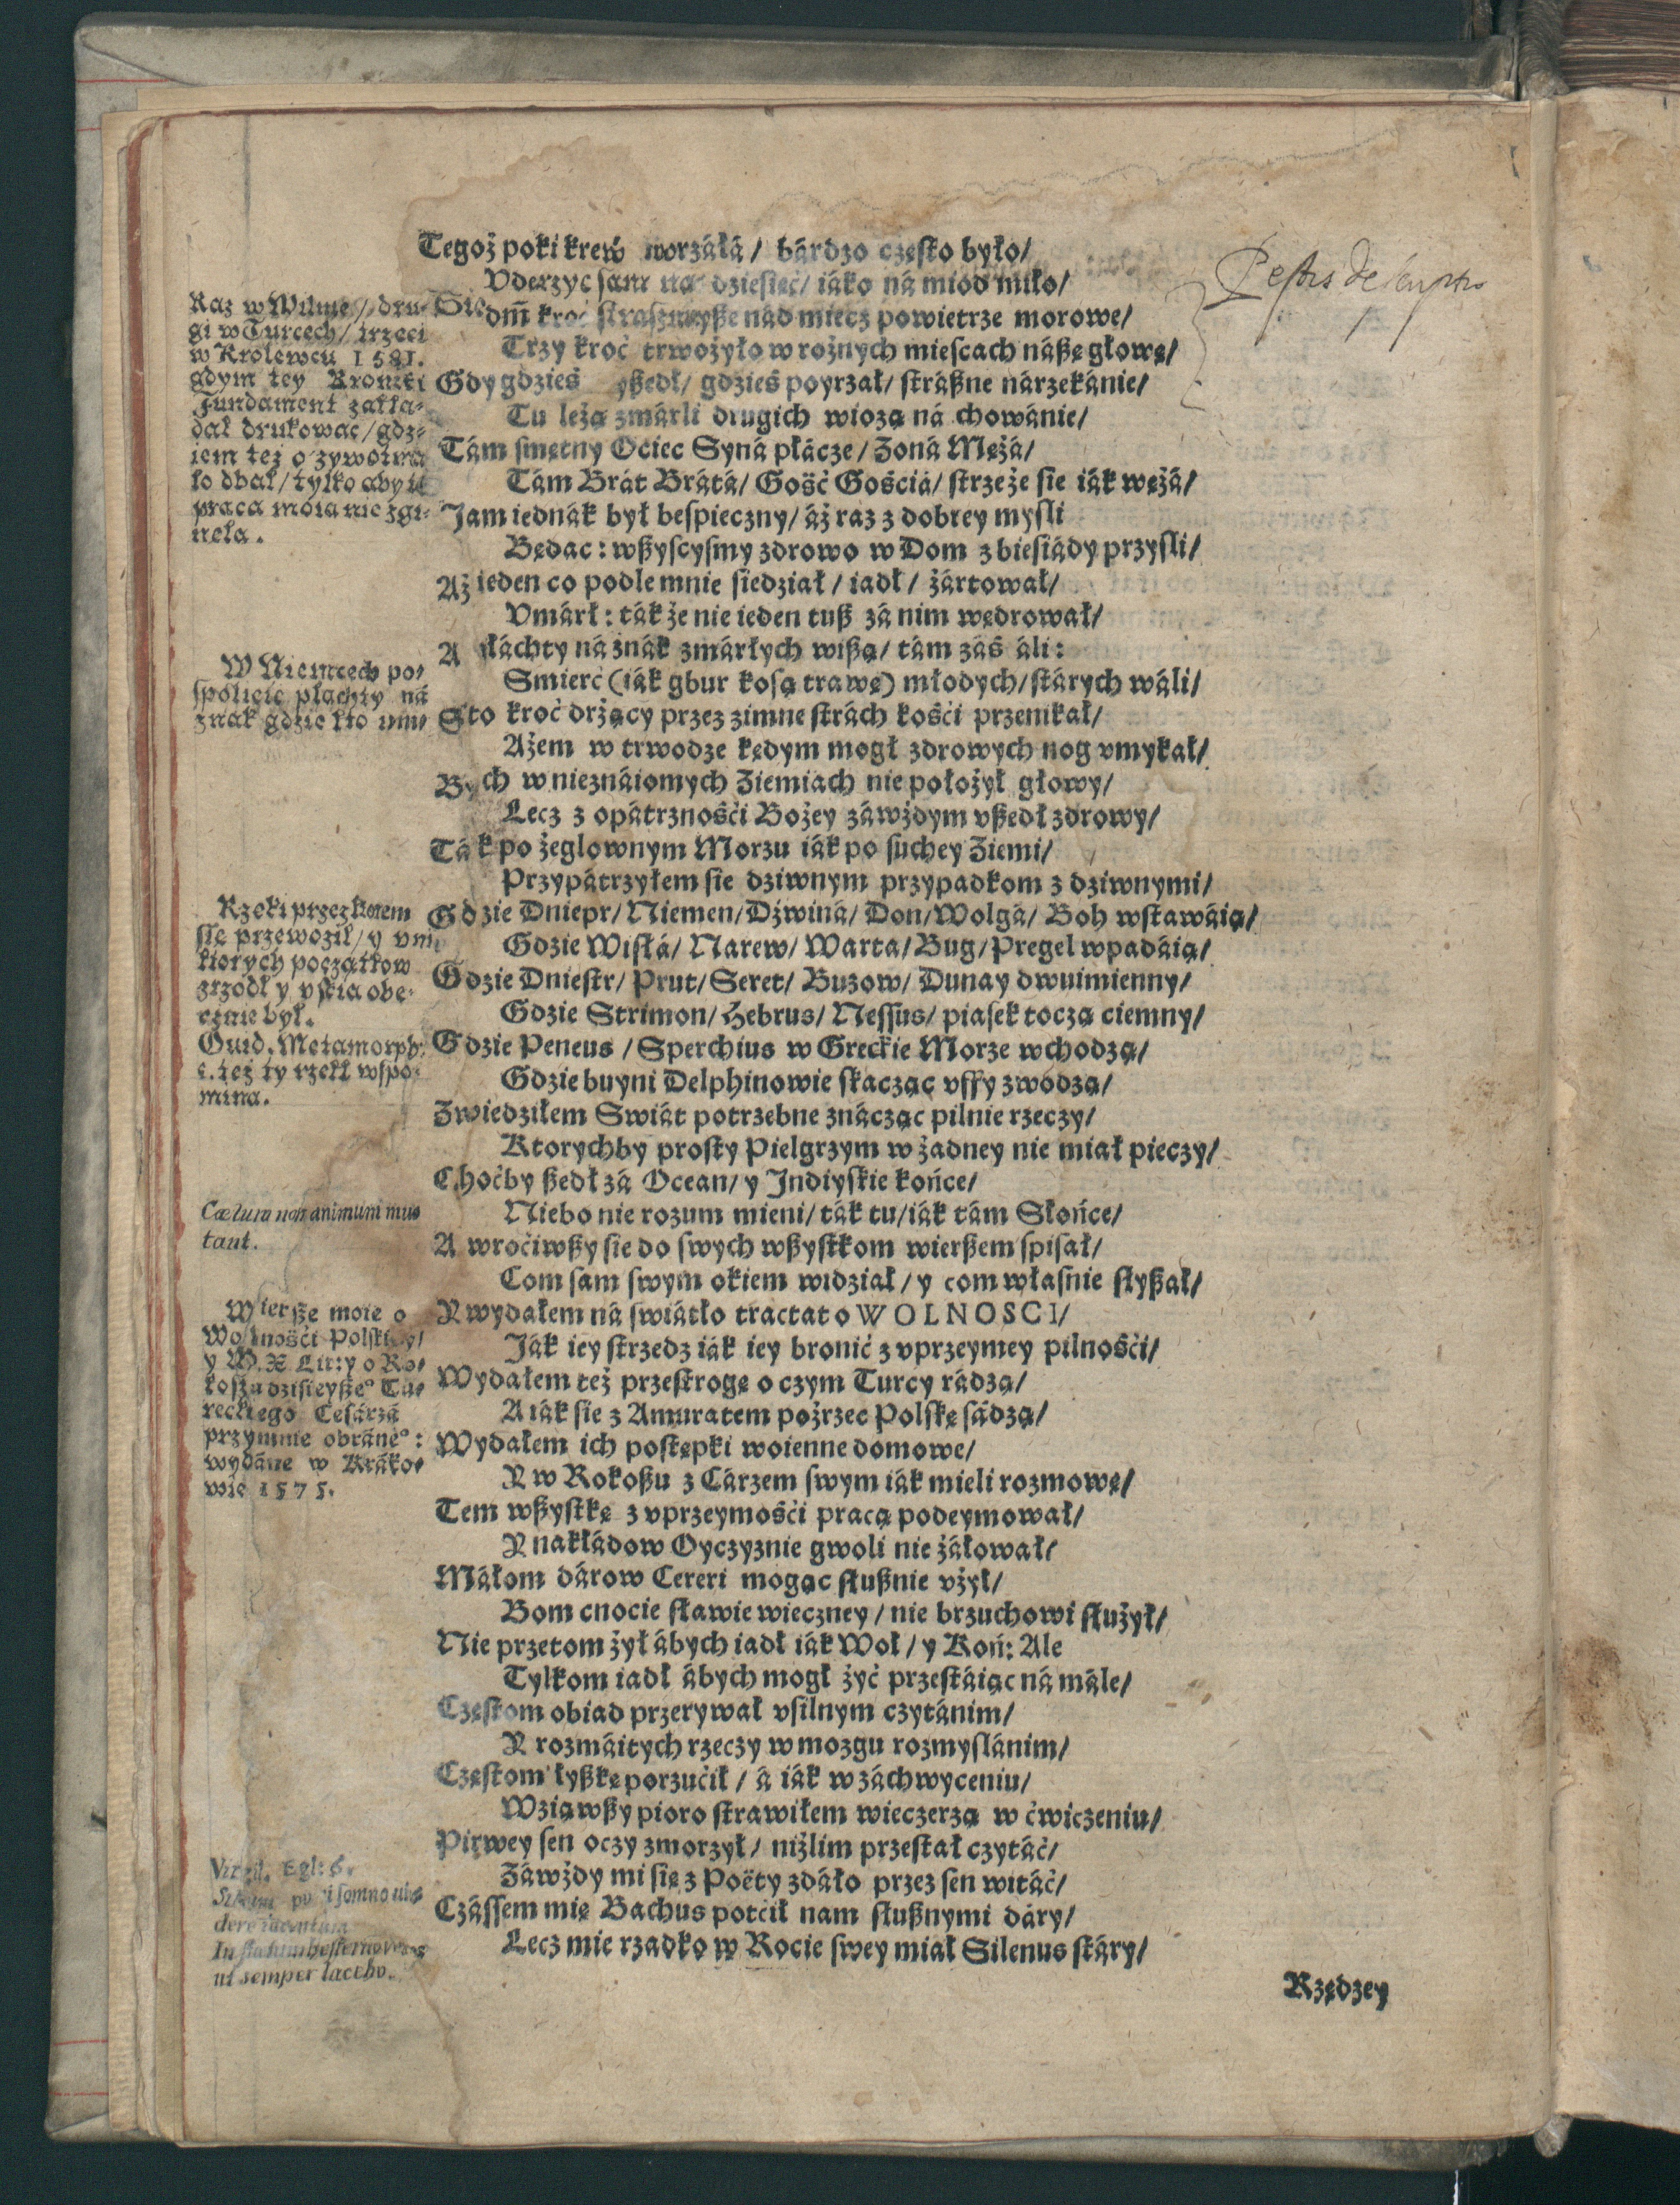 Tegoż poki krew worzáłá / bárdzo często było /
Vderzyć sam na dziesięć / iáko ná miod miło /
Siedm̄ kroć strászniyße nád miecz powietrze morowe /
Trzy kroć trwożyło w rożnych miescach náßę głowę /
Gdy gdzieś yßedł / gdzieś poyrzał / stráßne nárzekánie /
Tu leżą zmárli drugich wiozą ná chowánie /
Tám smętny Ociec Syná płácze / Zoná Mężá /
Tám Brát Brátá / Gość Gościá / strzeże sie iák wężá /
Jam iednák był bespieczny / áż raz z dobrey mysli
Będac : wßyscysmy zdrowo w Dom z biesiády przysli /
Aż ieden co podle mnie siedział / iadł / żártował /
Vmárł : ták że nie ieden tuß zá nim wędrował /
A płáchty ná znák zmárłych wißą / tám záś áli :
Smierć (iák gbur kosą trawę) młodych / stárych wáli /
Sto kroć drżący przez zimne strách kości przenikał /
Ażem w trwodze kędym mogł zdrowych nog vmykał /
Bych w nieznáiomych Ziemiach nie położył głowy /
Lecz z opátrzności Bożey záwżdym vßedł zdrowy /
Ták po żeglownym Morzu iák po suchey Ziemi /
Przypátrzyłem sie dziwnym przypadkom z dziwnymi /
Gdzie Dniepr / Niemen / Dźwiná / Don / Wolgá / Boh wstawáią /
Gdzie Wisłá / Narew / Warta / Bug / Pregel wpadáią /
Gdzie Dniestr / Prut / Seret / Buzow / Dunay dwuimienny /
Gdzie Strimon / Hebrus / Nessus / piasek toczą ciemny /
Gdzie Peneus / Sperchius w Greckie Morze wchodzą /
Gdzie buyni Delphinowie skacząc vffy zwodzą /
Zwiedziłem Swiát potrzebne znácząc pilnie rzeczy /
Ktorychby prosty Pielgrzym w żadney nie miał pieczy /
Choćby ßedł zá Ocean / y Jndiyskie końce /
Niebo nie rozum mieni / ták tu / iák tám Słońce /
A wrociwßy sie do swych wßystkom wierßem spisał /
Com sam swym okiem widział / y com własnie słyßał /
Y wydałem ná swiátło tractat o WOLNOSCI /
Ják iey strzedz iák iey bronić z vprzeymey pilności /
Wydałem też przestrogę o czym Turcy rádzą /
A iák sie z Amuratem pożrzec Polskę sádzą /
Wydałem ich postępki woienne domowe /
Y w Rokoßu z Cárzem swym iák mieli rozmowę /
Tem wßystkę z vprzeymości pracą podeymował /
Y nakłádow Oyczyznie gwoli nie żáłował /
Máłom dárow Cereri mogąc słußnie vżył /
Bom cnocie sławie wieczney / nie brzuchowi służył /
Nie przetom żył ábych iadł iák Woł / y Koń : Ale
Tylkom iadł ábych mogł żyć przestáiąc ná mále /
Częstom obiad przerywał vsilnym czytánim /
Y rozmáitych rzeczy w mozgu rozmyslánim /
Częstom łyßkę porzucił / á iák w záchwyceniu /
Wziąwßy pioro strawiłem wieczerzą w ćwiczeniu /
Pirwey sen oczy zmorzył / niżlim przestał czytáć /
Záwżdy mi się z Poëty zdáło przez sen witáć /
Czássem mię Bachus potcił nam słußnymi dáry /
Lecz mie rzadko w Rocie swey miał Silenus stáry /
Rzędzey
Raz w Wilnie / dru-
gi w Turcech / trzeci
w Krolewcu 1581.
gdym tey Kroniki
Fundament zakła-
dał drukowac / gdz-
iem też o żywot ma
ło dbał / tylko aby tá
praca moia nie zgi-
nęła.
W Niemcech po-
spolicie płachty ná
znak gdzie kto umr
Rzeki przez ktorem
się przewoził / y v nie
ktorych początkow
zrzodł y vścia obe-
cznie był.
Ouid. Metamorph:
też ty rzeki wspo-
mina.
Cœlum non animum mu-
tant.
Wierße moie o
Wolności Polskiey /
y W. X. Lit: y o Ro-
koszu dzisieyße° Tu-
reckiego Cesárzá
przy mnie obráne° :
wydáne w Kráko-
wie 1575.
Virgil. Egl: 6.
somno
In
ut semper Iaccho.